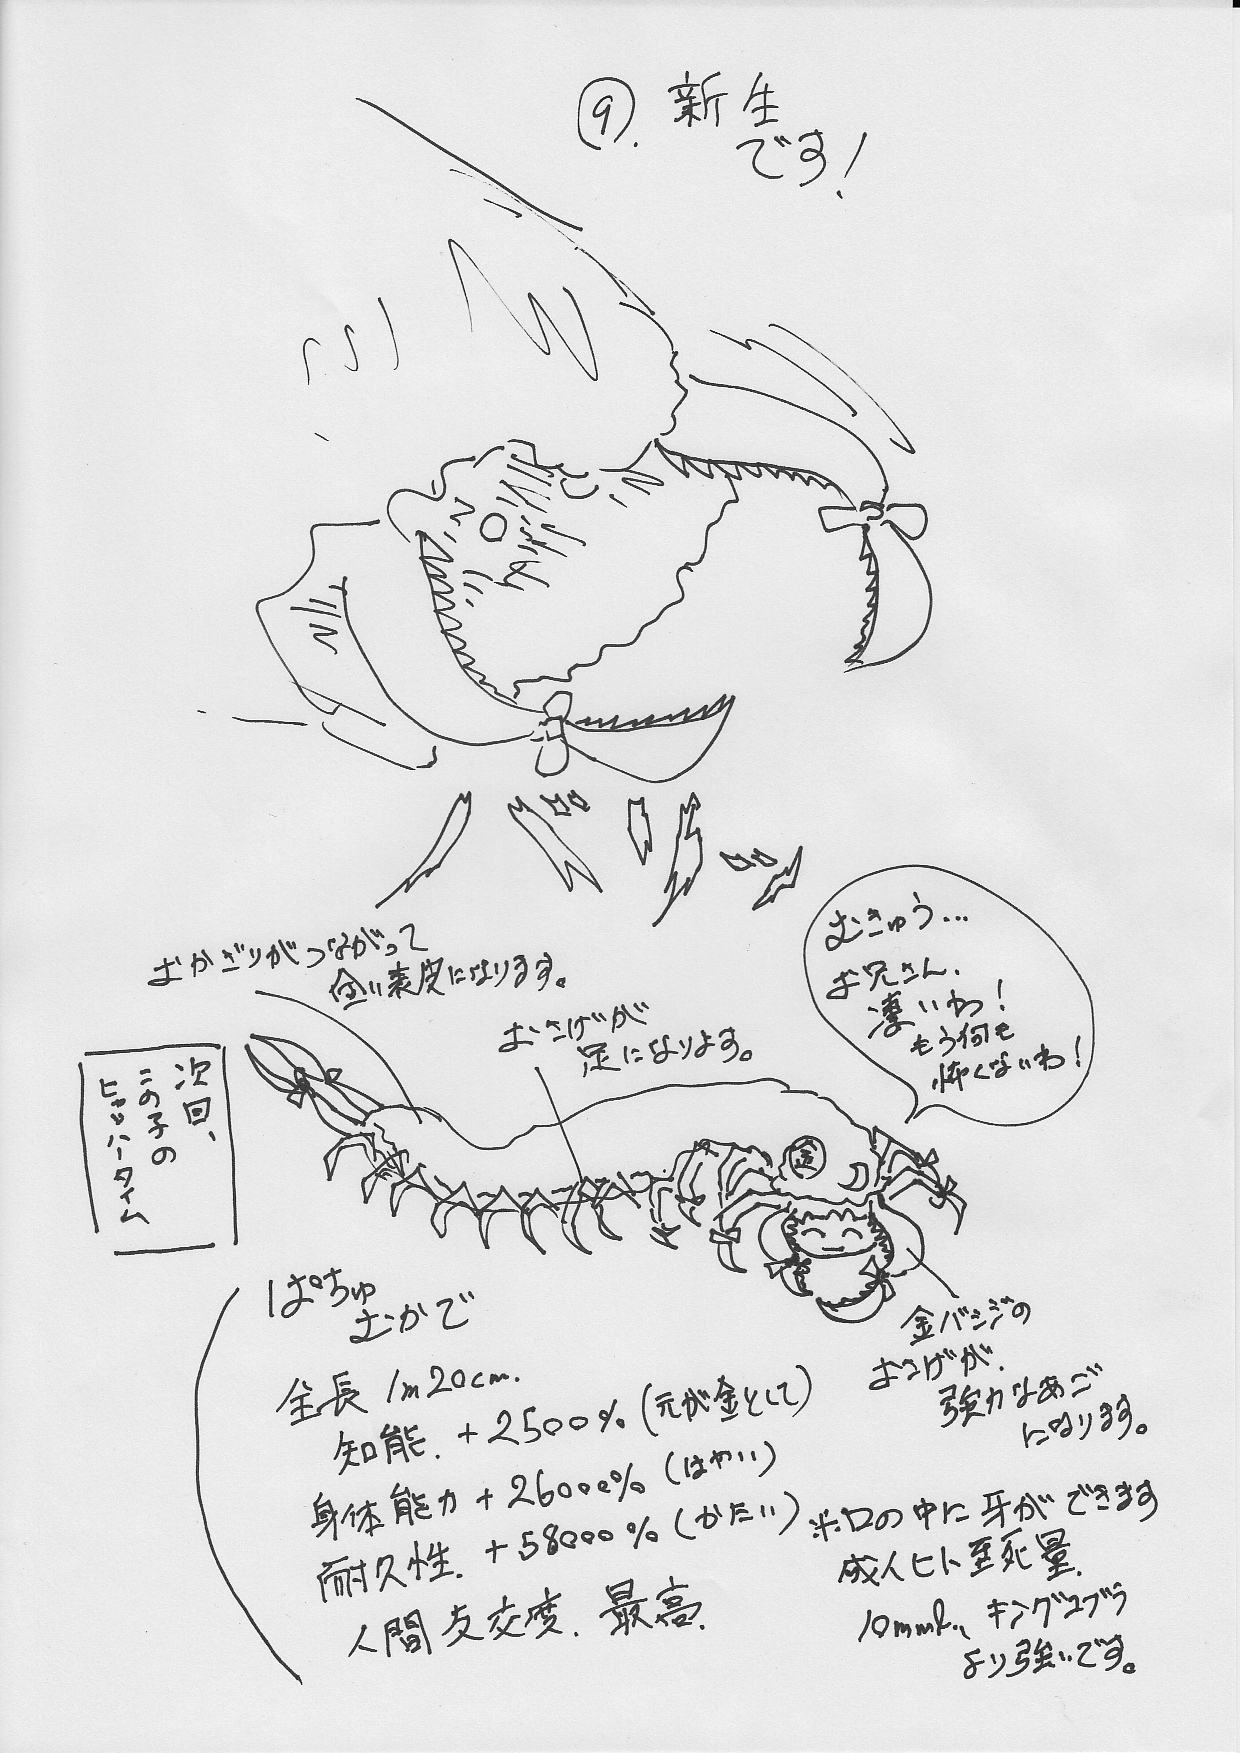 ⑨. 新生
です!
おかざりがつながって
固い表皮になります。
おさげが
足になります。
むきゅう…
お兄さん、
凄いわ!
もう何も
怖くないわ!
次回、
この子の
ヒャッハータイム
ぱちゅ
むかで
全長 1m20cm.
知能. +2500% (元が金として)
身体能力 +26000% (はやい)
耐久性. +58000% (かたい)
人間友交度. 最高.
金バッジの
おさげが、
強力なあご
になります。
※口の中に牙ができます
成人ヒト致死量.
キングコブラ
より強いです。